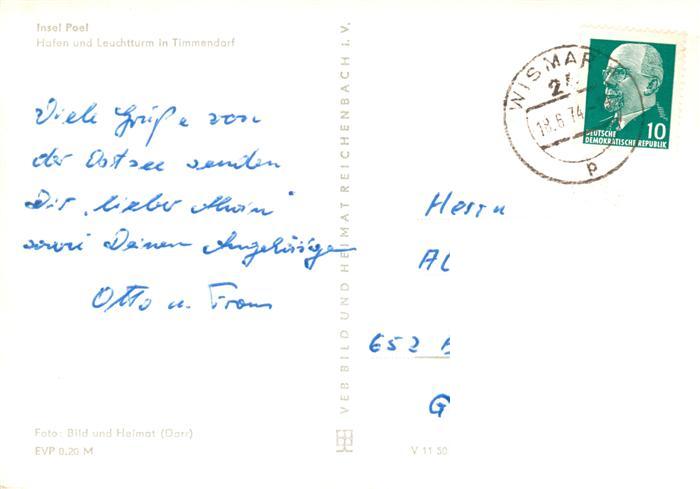 Insel Poel
Hafen und Leuchtturm in Timmendorf
Viele Grüße von
der Ostsee senden
Dir, lieber
sowie Deinen Angehörigen
Otto u. Frau
Foto: Bild und Heimat (Darr)
EVP 0,20 M
VEB BILD UND HEIMAT REICHENBACH i. V.
V 11 50
WISMAR
18.6.74
p
10
DEUTSCHE
DEMOKRATISCHE REPUBLIK
Herrn
Al
652
G